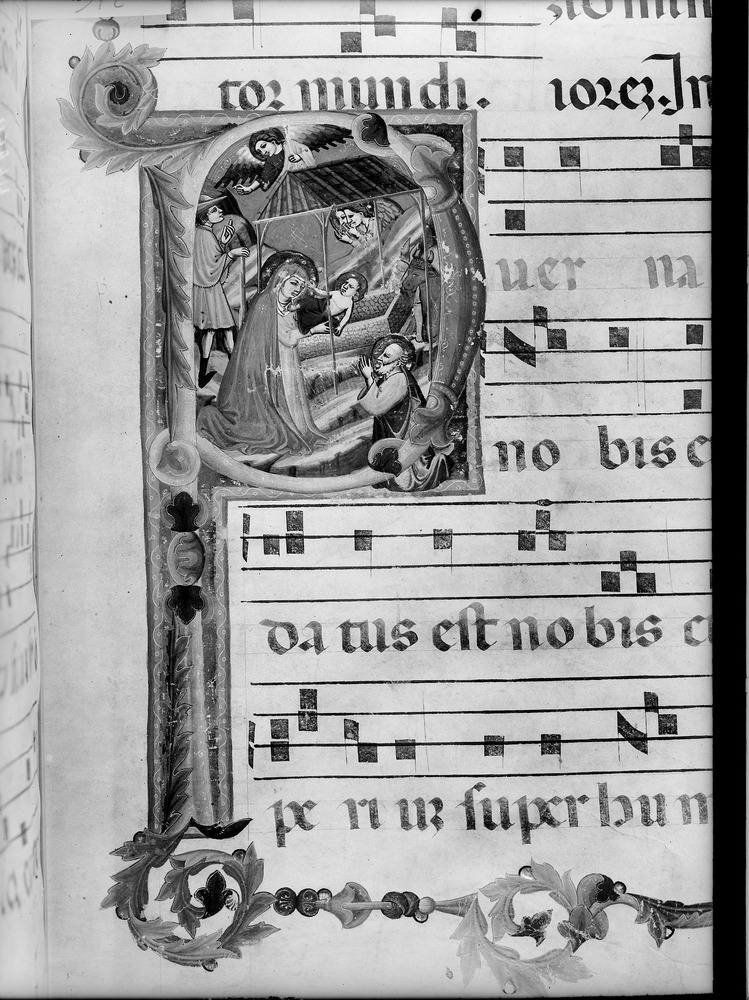 tor mundi. iorez. In
Puer na
no bis e
da tus est no bis cu
pe ri uz super hu m